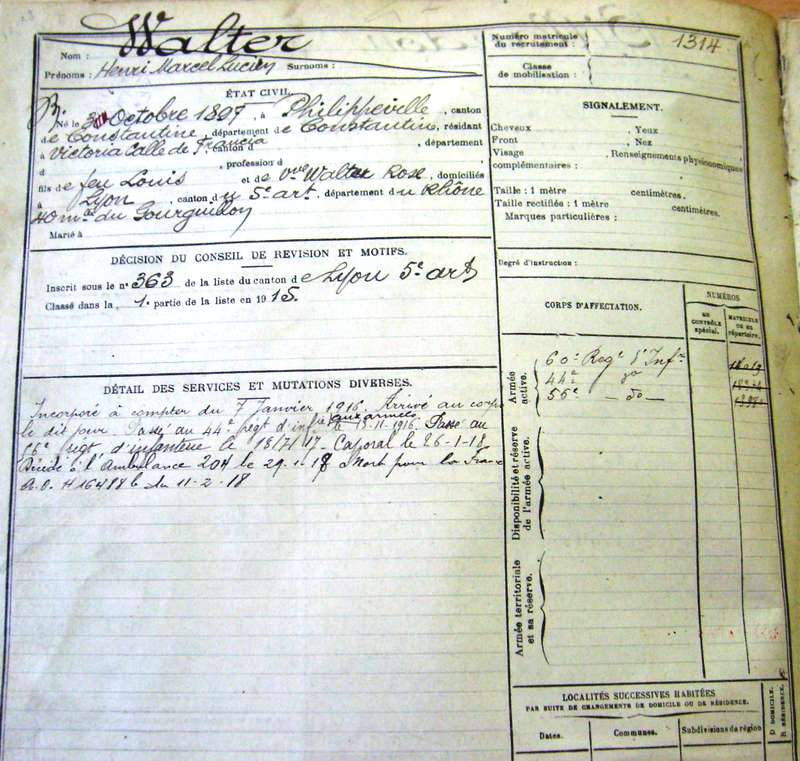 Walter
Nom :
Prénoms : Henri Marcel Lucien Surnoms :
Numéro matricule du recrutement : 1314
Classe de mobilisation :
ÉTAT CIVIL.
Né le Octobre 1897, à Philippeville, canton
de Constantine, département de Constantine, résidant
à Victoria Calle de Francia canton d , département
d , profession d
fils de feu Louis et de Vve Walter Rose, domiciliés
à Lyon, canton du 5e art, département du Rhône
40 du Gourguillon
Marié à
SIGNALEMENT.
Cheveux , Yeux
Front , Nez
Visage , Renseignements physionomiques
complémentaires :
Taille : 1 mètre centimètres.
Taille rectifiée : 1 mètre centimètres.
Marques particulières :
Degré d'instruction :
DÉCISION DU CONSEIL DE REVISION ET MOTIFS.
Inscrit sous le no 363 de la liste du canton de Lyon 5e art
Classé dans la 1e partie de la liste en 1915.
DÉTAIL DES SERVICES ET MUTATIONS DIVERSES.
Incorporé à compter du 7 Janvier 1916. Arrivé au corps
le dit jour Passé au 44e regt d'infie aux armées le 13-11-1916. Passé au
regt d'infanterie le 17 - Caporal le 26-1-18
Décédé à l'Ambulance 204 le 29-1-18 Mort pour la France
du 11-2-18
CORPS D'AFFECTATION.
NUMÉROS
AU CONTRÔLE spécial.
MATRICULE OU AU répertoire.
Armée active.
60e Regt d'Infie
44e do
55e - do -
Disponibilité et réserve de l'armée active.
Armée territoriale et sa réserve.
LOCALITÉS SUCCESSIVES HABITÉES
PAR SUITE DE CHANGEMENTS DE DOMICILE OU DE RÉSIDENCE.
Dates. Communes. Subdivisions de région
D DOMICILE.
R RÉSIDENCE.